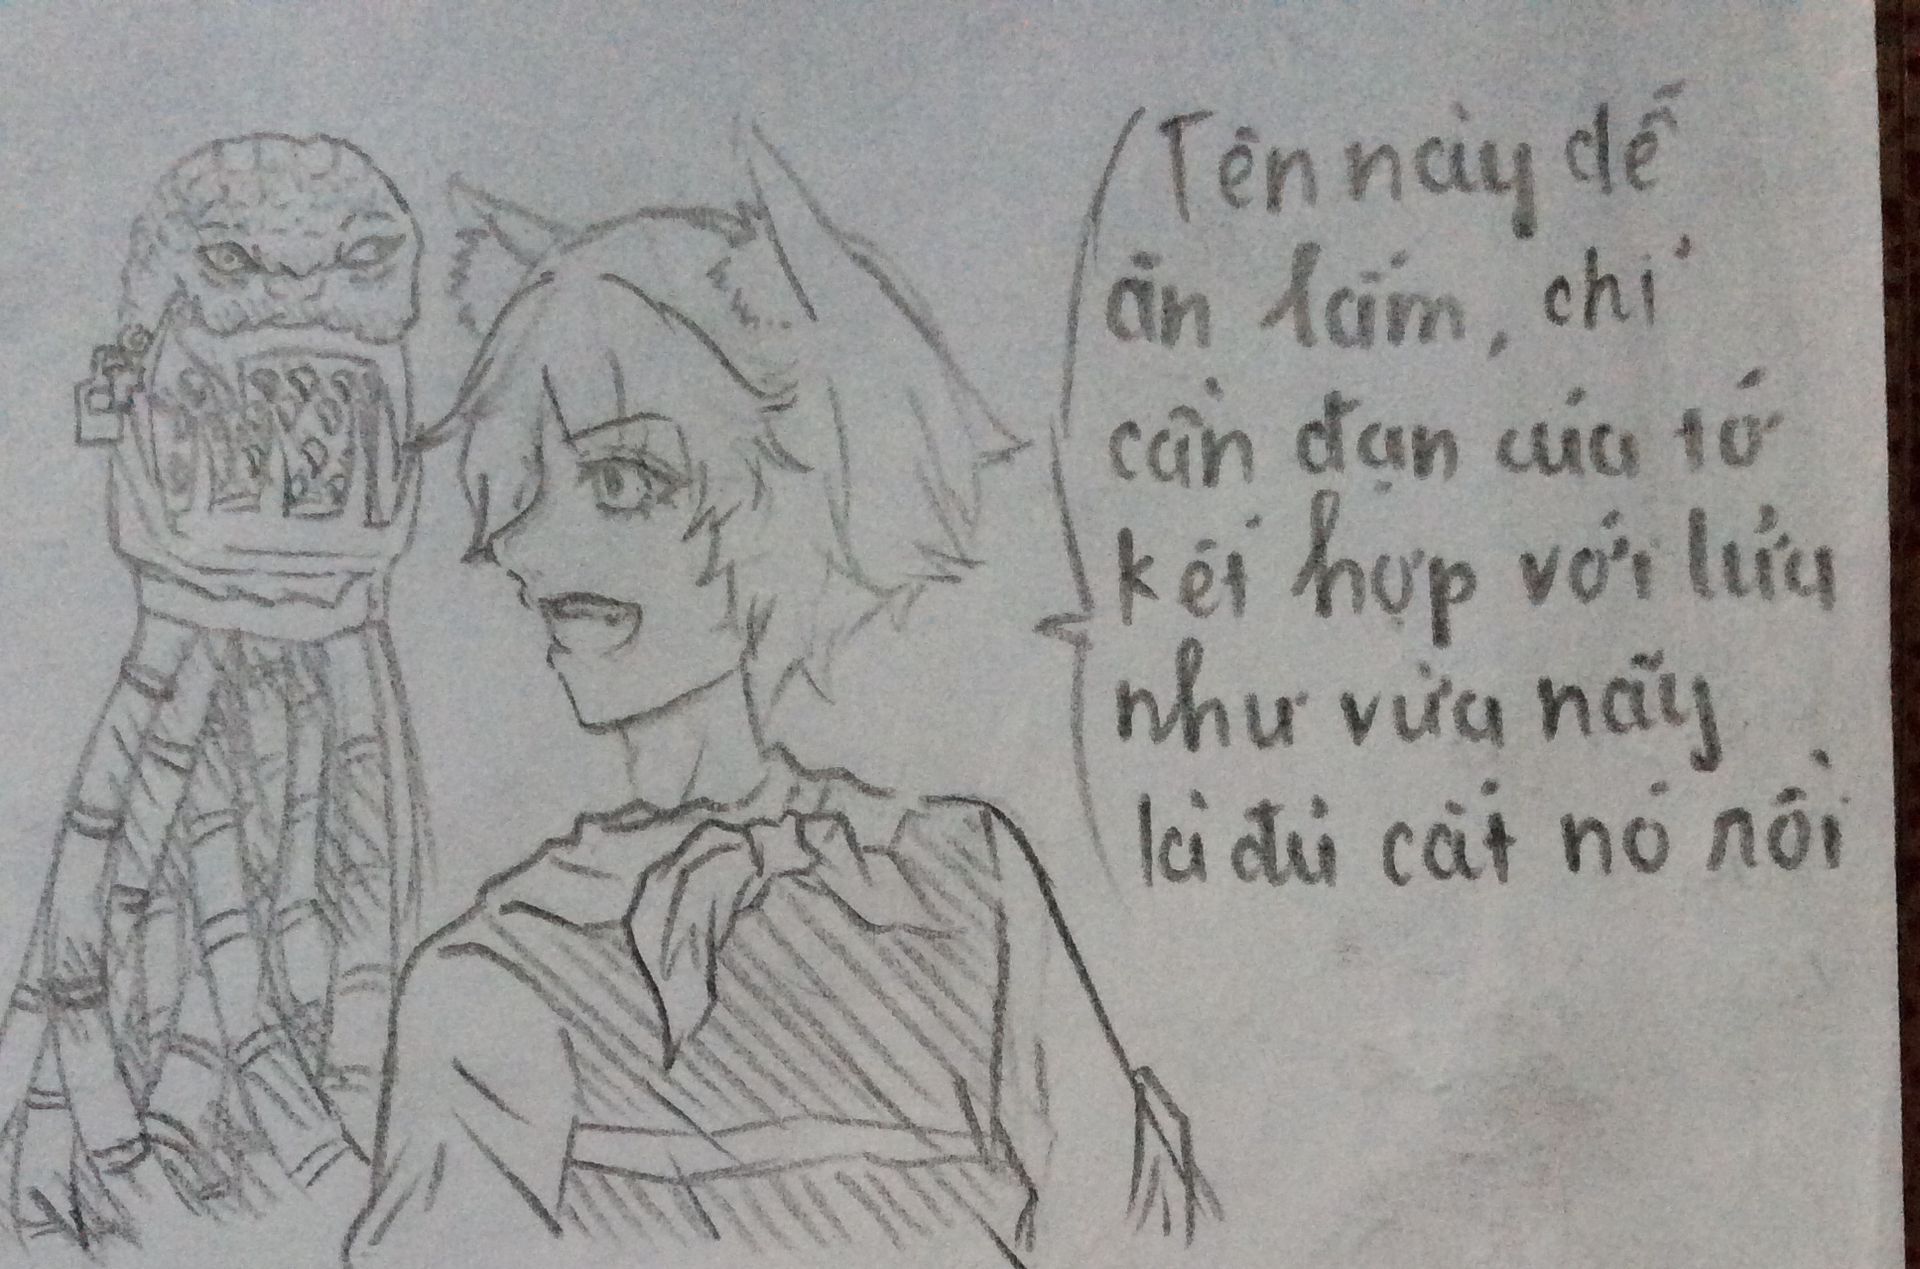 Tên này dễ
ăn lắm, chỉ
cần đạn của tớ
kết hợp với lửa
như vừa nãy
là đủ cắt nó rồi